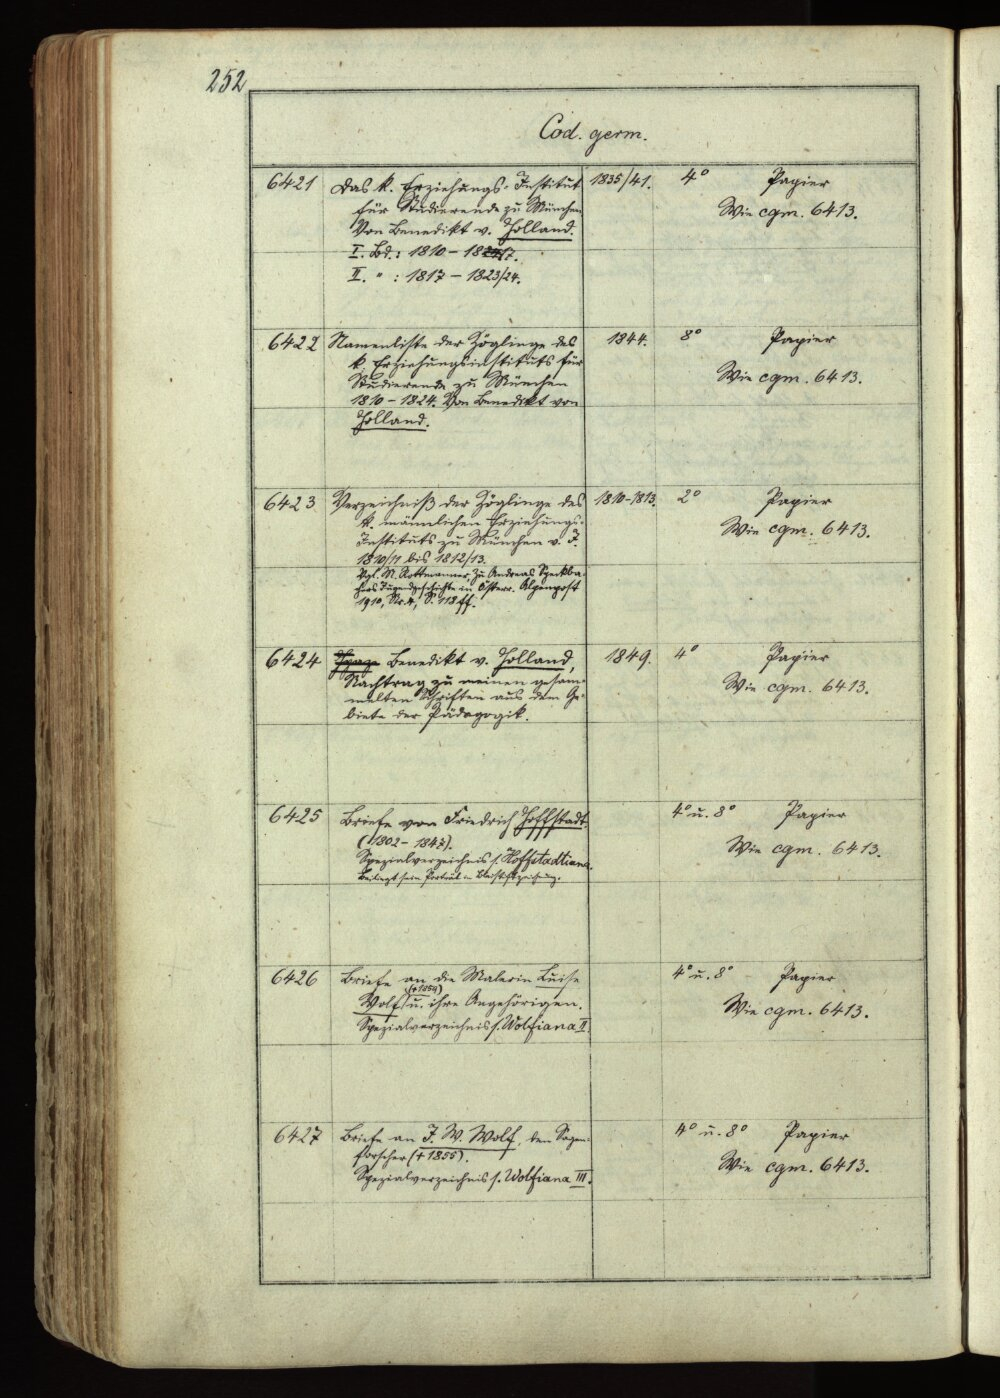 252
Cod. germ.
6421 Das k. Erziehungs-Institut 1835/41. 4° Papier
für Studierende zu München Wie cgm. 6413.
Von Benedikt v. Holland.
I. Bd.: 1810 - 1817.
II. " : 1817 - 1823/24.
6422 Namenliste der Zöglinge des 1844. 8° Papier
k. Erziehungsinstituts für Wie cgm. 6413.
Studierende zu München
1810 - 1824. Von Benedikt von
Holland.
6423 Verzeichniß der Zöglinge des 1810-1813. 2° Papier
k. männlichen Erziehungs- Wie cgm. 6413.
Instituts zu München v. J.
1810/11 bis 1812/13.
Vgl. M. Rottmanner, Zu Andreas Speckba-
chers Jugendgeschichte in Österr. Alpenpost
1910, Nr. 4, S. 118 ff.
6424 Benedikt v. Holland, 1849. 4° Papier
Nachtrag zu meinen gesam- Wie cgm. 6413.
melten Schriften aus dem Ge-
biete der Pädagogik.
6425 Briefe von Friedrich Hoffstadt. 4° u. 8° Papier
(1802 - 1847). Wie cgm. 6413.
Spezialverzeichnis s. Hoffstadtiana.
Beiliegt sein Porträt in Bleistiftzeichnung.
6426 Briefe an die Malerin Luise 4° u. 8° Papier
(+1859)
Wolf u. ihre Angehörigen. Wie cgm. 6413.
Spezialverzeichnis s. Wolfiana II.
6427 Briefe an J. W. Wolf, den Sagen- 4° u. 8° Papier
forscher (+ 1855). Wie cgm. 6413.
Spezialverzeichnis s. Wolfiana III.